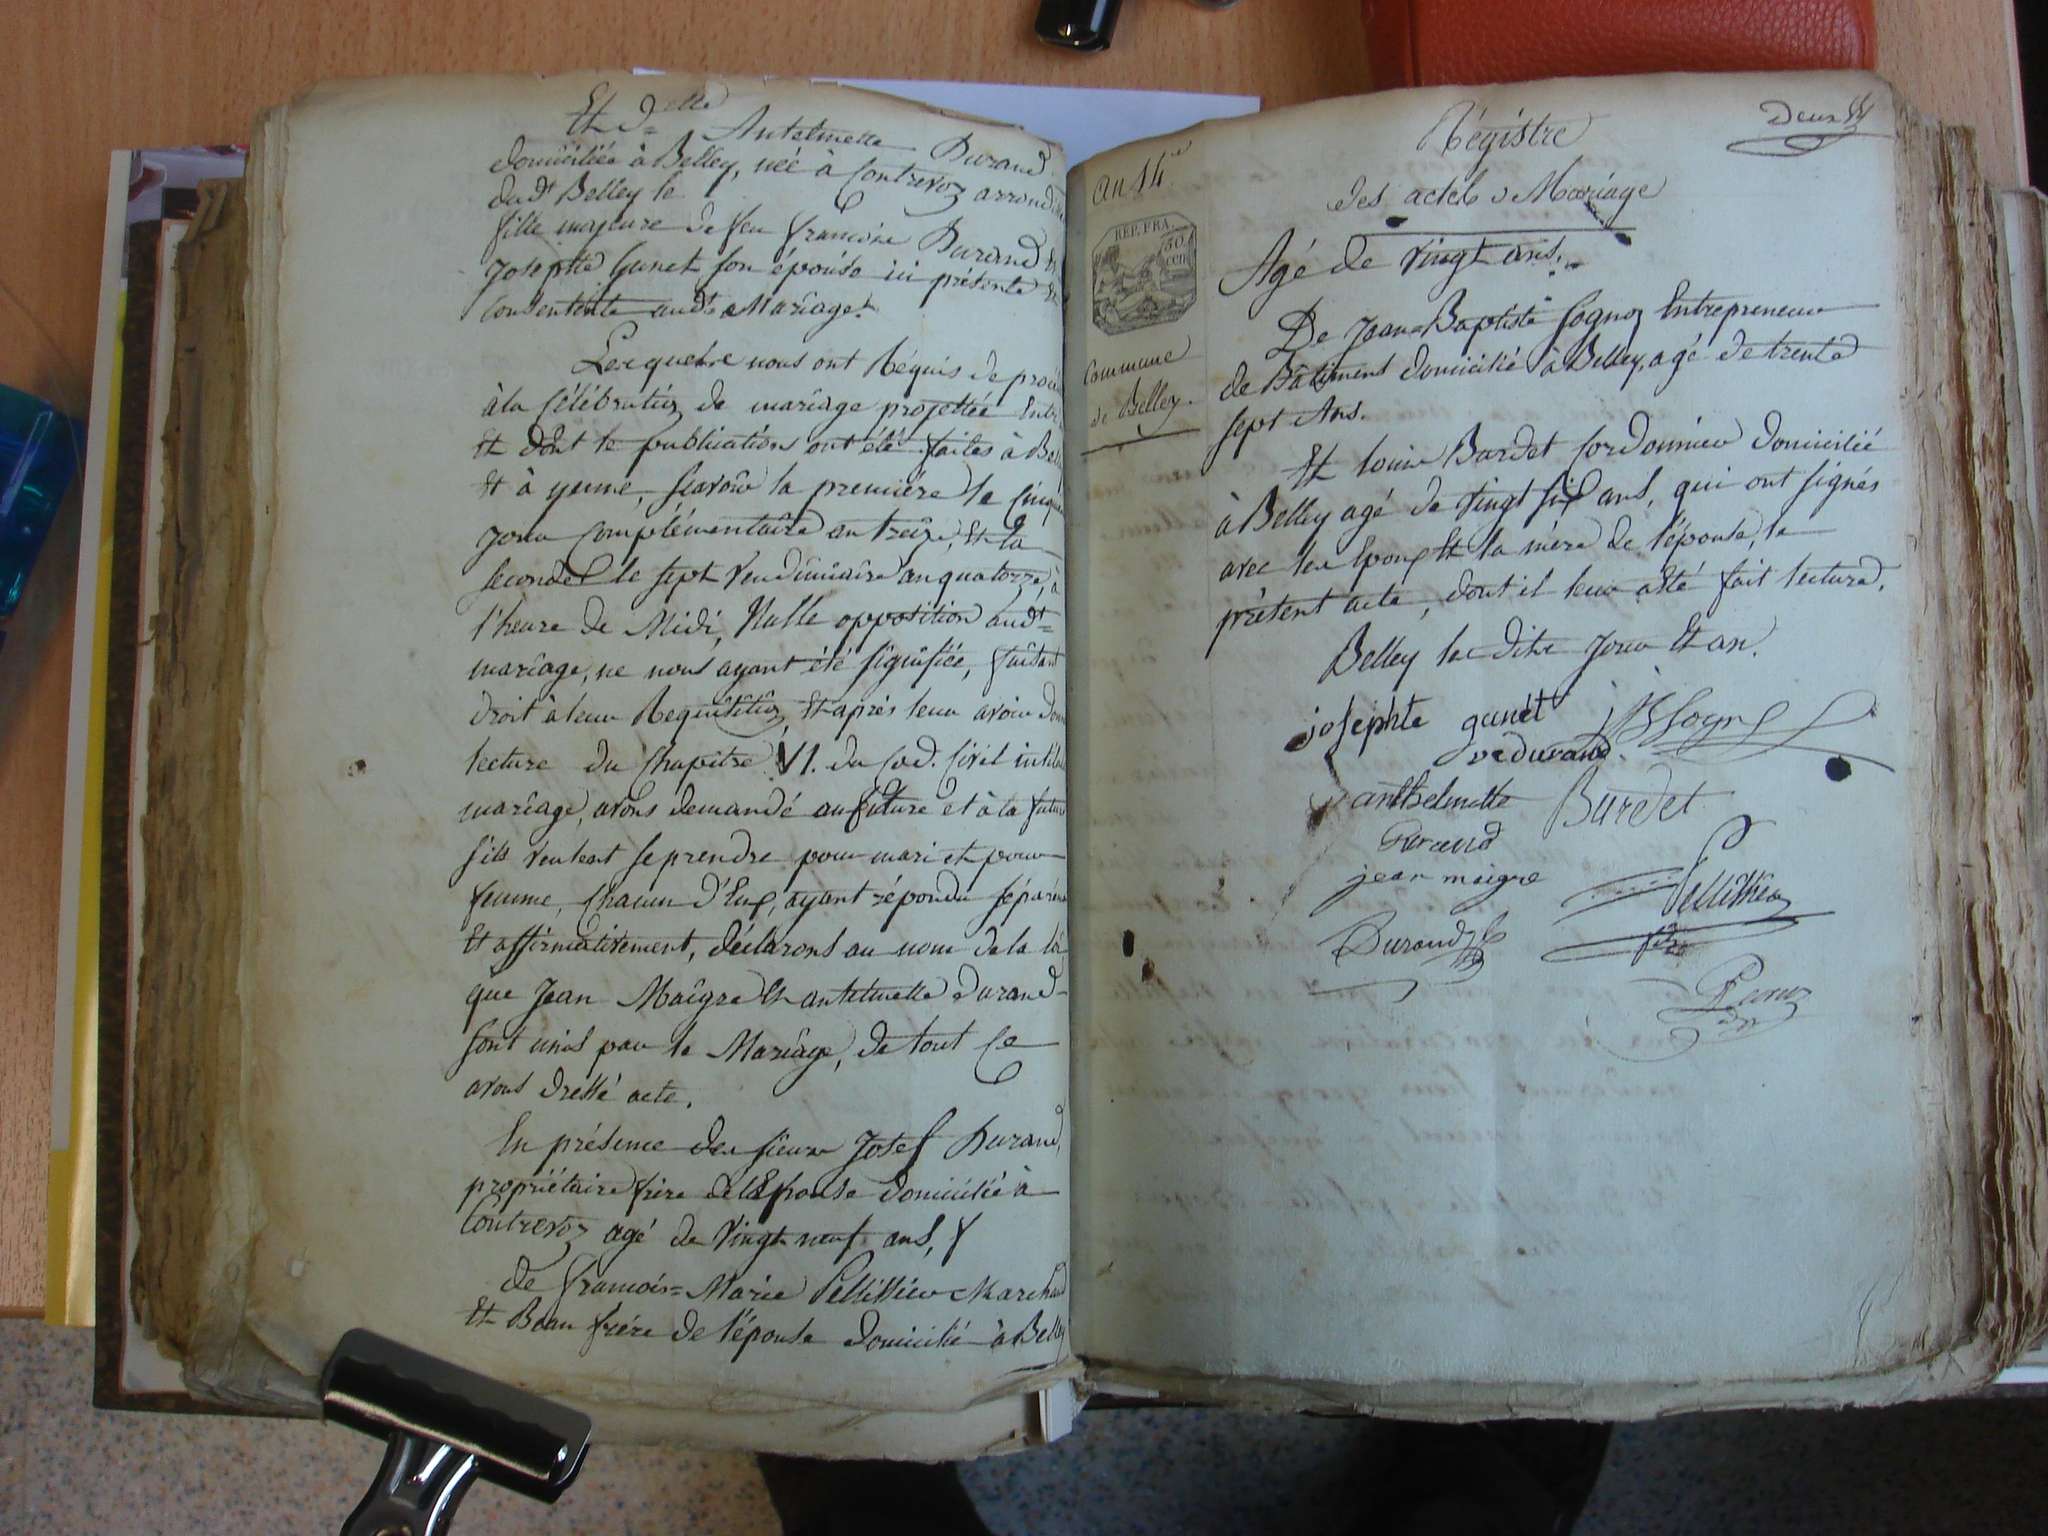 Et d.elle Antelmette Durand
domiciliée à Belley, née à Contrevoz arrondiss
dudt Belley le
fille majeure de feu francoise Durand Et
Josephte Gunet son épouse ici présente Et
Consentente audt Mariage.
Lesquels nous ont Réquis de procé
à la Célébration de mariage projettée Entre
Et dont le publications ont été faites à Bel
Et à yenne, sçavoir la première le Cinqu
Jour Complémentaire an treize, Et la
seconde le sept Vendémiaire an quatorze, à
l'heure de Midi, Nulle opposition audt
mariage, ne nous ayant été signifiée, faisant
droit à leur Requisition Et après leur avoir donn
lecture du Chapitre VI. du Cod. Civil intitul
mariage, avons demandé au future et à la future
s'ils veulent se prendre pour mari et pour
femme, Chacun d'Eux, ayant répondu séparém
Et affirmativement, déclarons au nom de la loi
que Jean Maigre Et antelmette Durand
sont unis par le Mariage, de tout Ce
avons dressé acte.
En présence des sieurs Josef Durand,
propriétaire frère de lEpouse domicilié à
Contrevoz agé de vingt neuf ans,
de francois=Marie Pellissier Marchand
Et Beau frére de l'épouse domicilié à Belley
Deux
Régistre
des actes de Mariage
an 14
REP. FRA.
50
cen
Commune
de Belley.
Agé de vingt ans.
De Jean=Baptiste Sognoz Entrepreneur
de Bâtiment domicilié à Belley, agé de trente
sept Ans.
Et louis Burdet Cordonnier domicilié
à Belley agé de vingt six ans, qui ont signés
avec les Epoux Et la mère de l'épouse, le
présent acte, dont il leur a été fait lecture.
Belley les dits jour Et an.
josephte gunet
ve durand
anthelmette Burdet
Durand
jean maigre
Pellissier
Durand